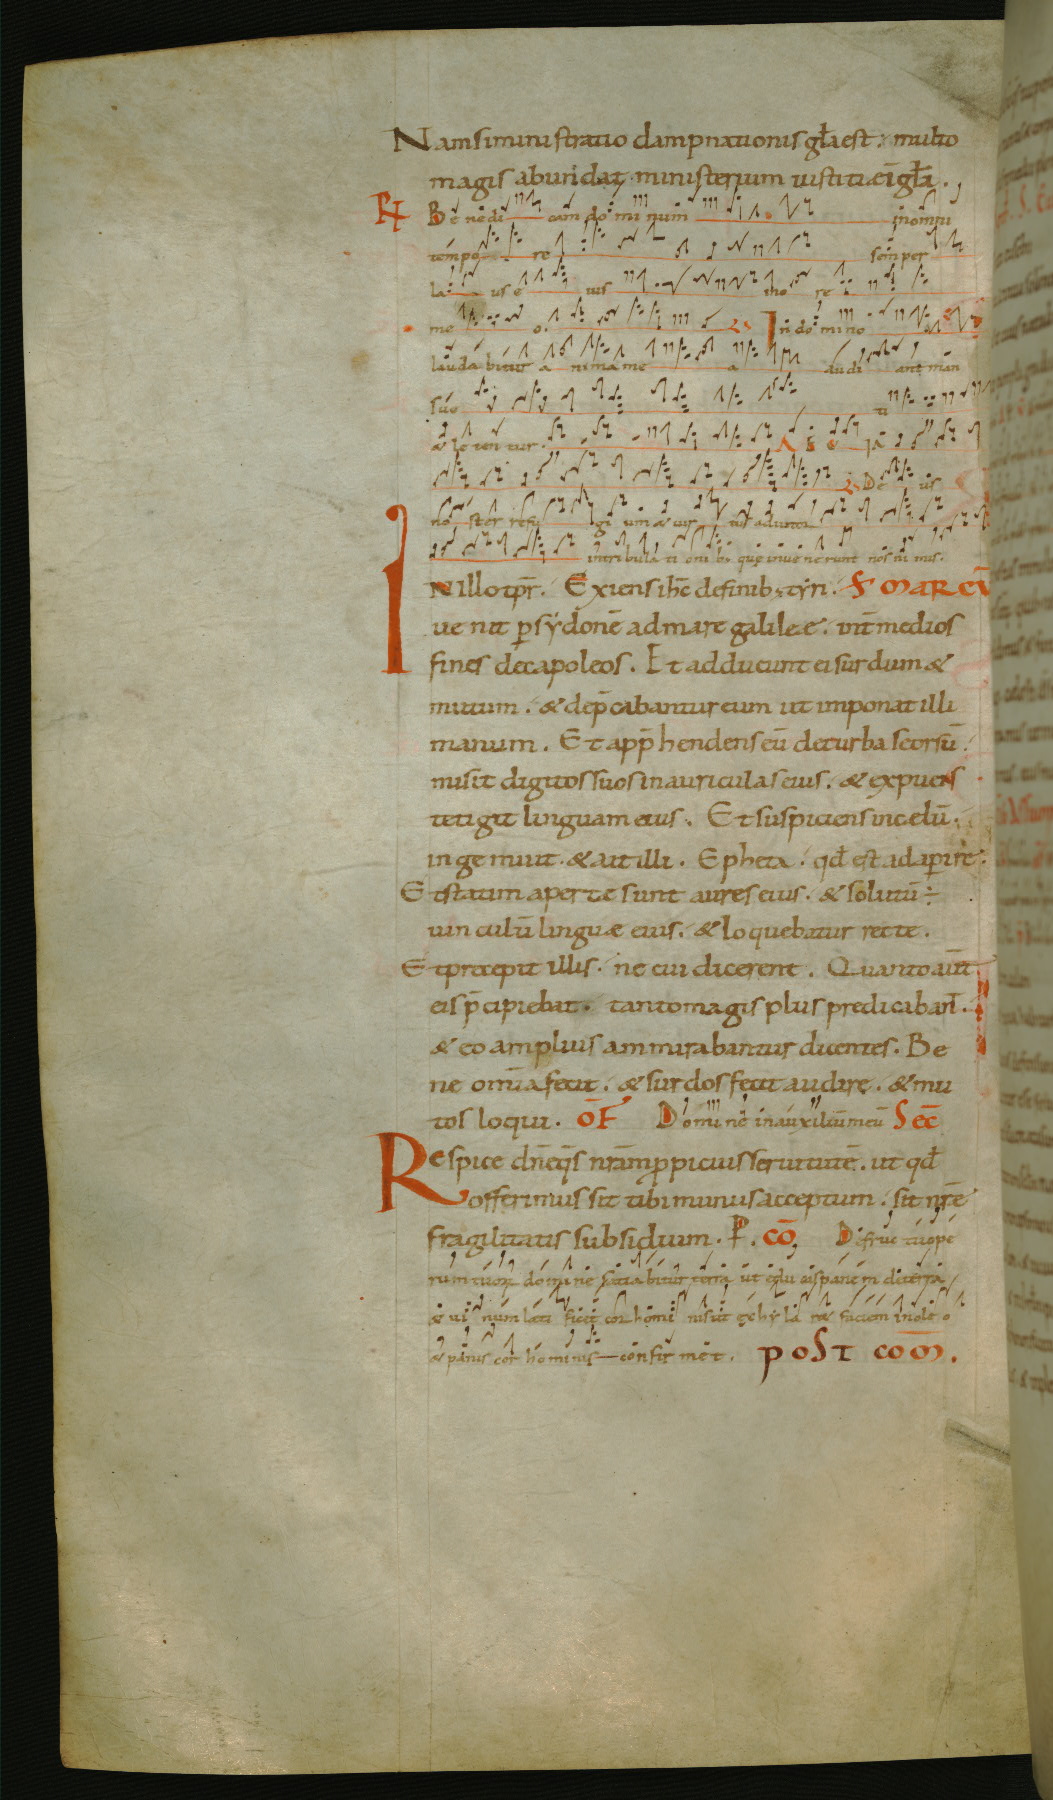 Nam si ministratio dampnationis gła est. multo
magis abundat ministerium iustitiae in gła.
R Benedi cam dominum in omni
tempo re semper
laus eius in o re
me o. V In domino
laudabitur a nima me a audi ant man
sue ti
& letentur. A e u ia
V De us
noster refu gi um & uir tus adiutor
in tribulati onib; quę inuenerunt nos ni mis.
IN illo tpr. Exiens ihc de finib; tyri. S MARCV
uenit p sydonē ad mare galileę. int medios
fines decapoleos. Et adducunt ei surdum &
mutum. & dep̄cabantur eum ut imponat illi
manum. Et app̄hendens eū de turba seorsū.
misit digitos suos in auriculas eius. & expuens
tetigit linguam eius. Et suspiciens in celū.
ingemuit. & ait illi. Epheta. qđ est adaperire.
Et statim aperte sunt aures eius. & solutū ÷
uinculū linguę eius. & loquebatur recte.
Et precepit illis. ne cui dicerent. Quanto aūt
eis p̄cipiebat. tanto magis plus predicabant.
& eo amplius ammirabantur dicentes. Be
ne omīa fecit. & surdos fecit audire. & mu
tos loqui. OF Domine in auxiliū meū SEC
Respice dn̄e qs nr̄am ppicius seruitutē. ut qđ
offerimus sit tibi munus acceptum. sit nr̄e
fragilitatis subsidium. P. CO De fructu ope
rum tuor domine satiabitur terra ut educas panem de terra
& uinum lętificet cor hominis ut exhylaret faciem in oleo
& panis cor hominis confirmet. POST COM.